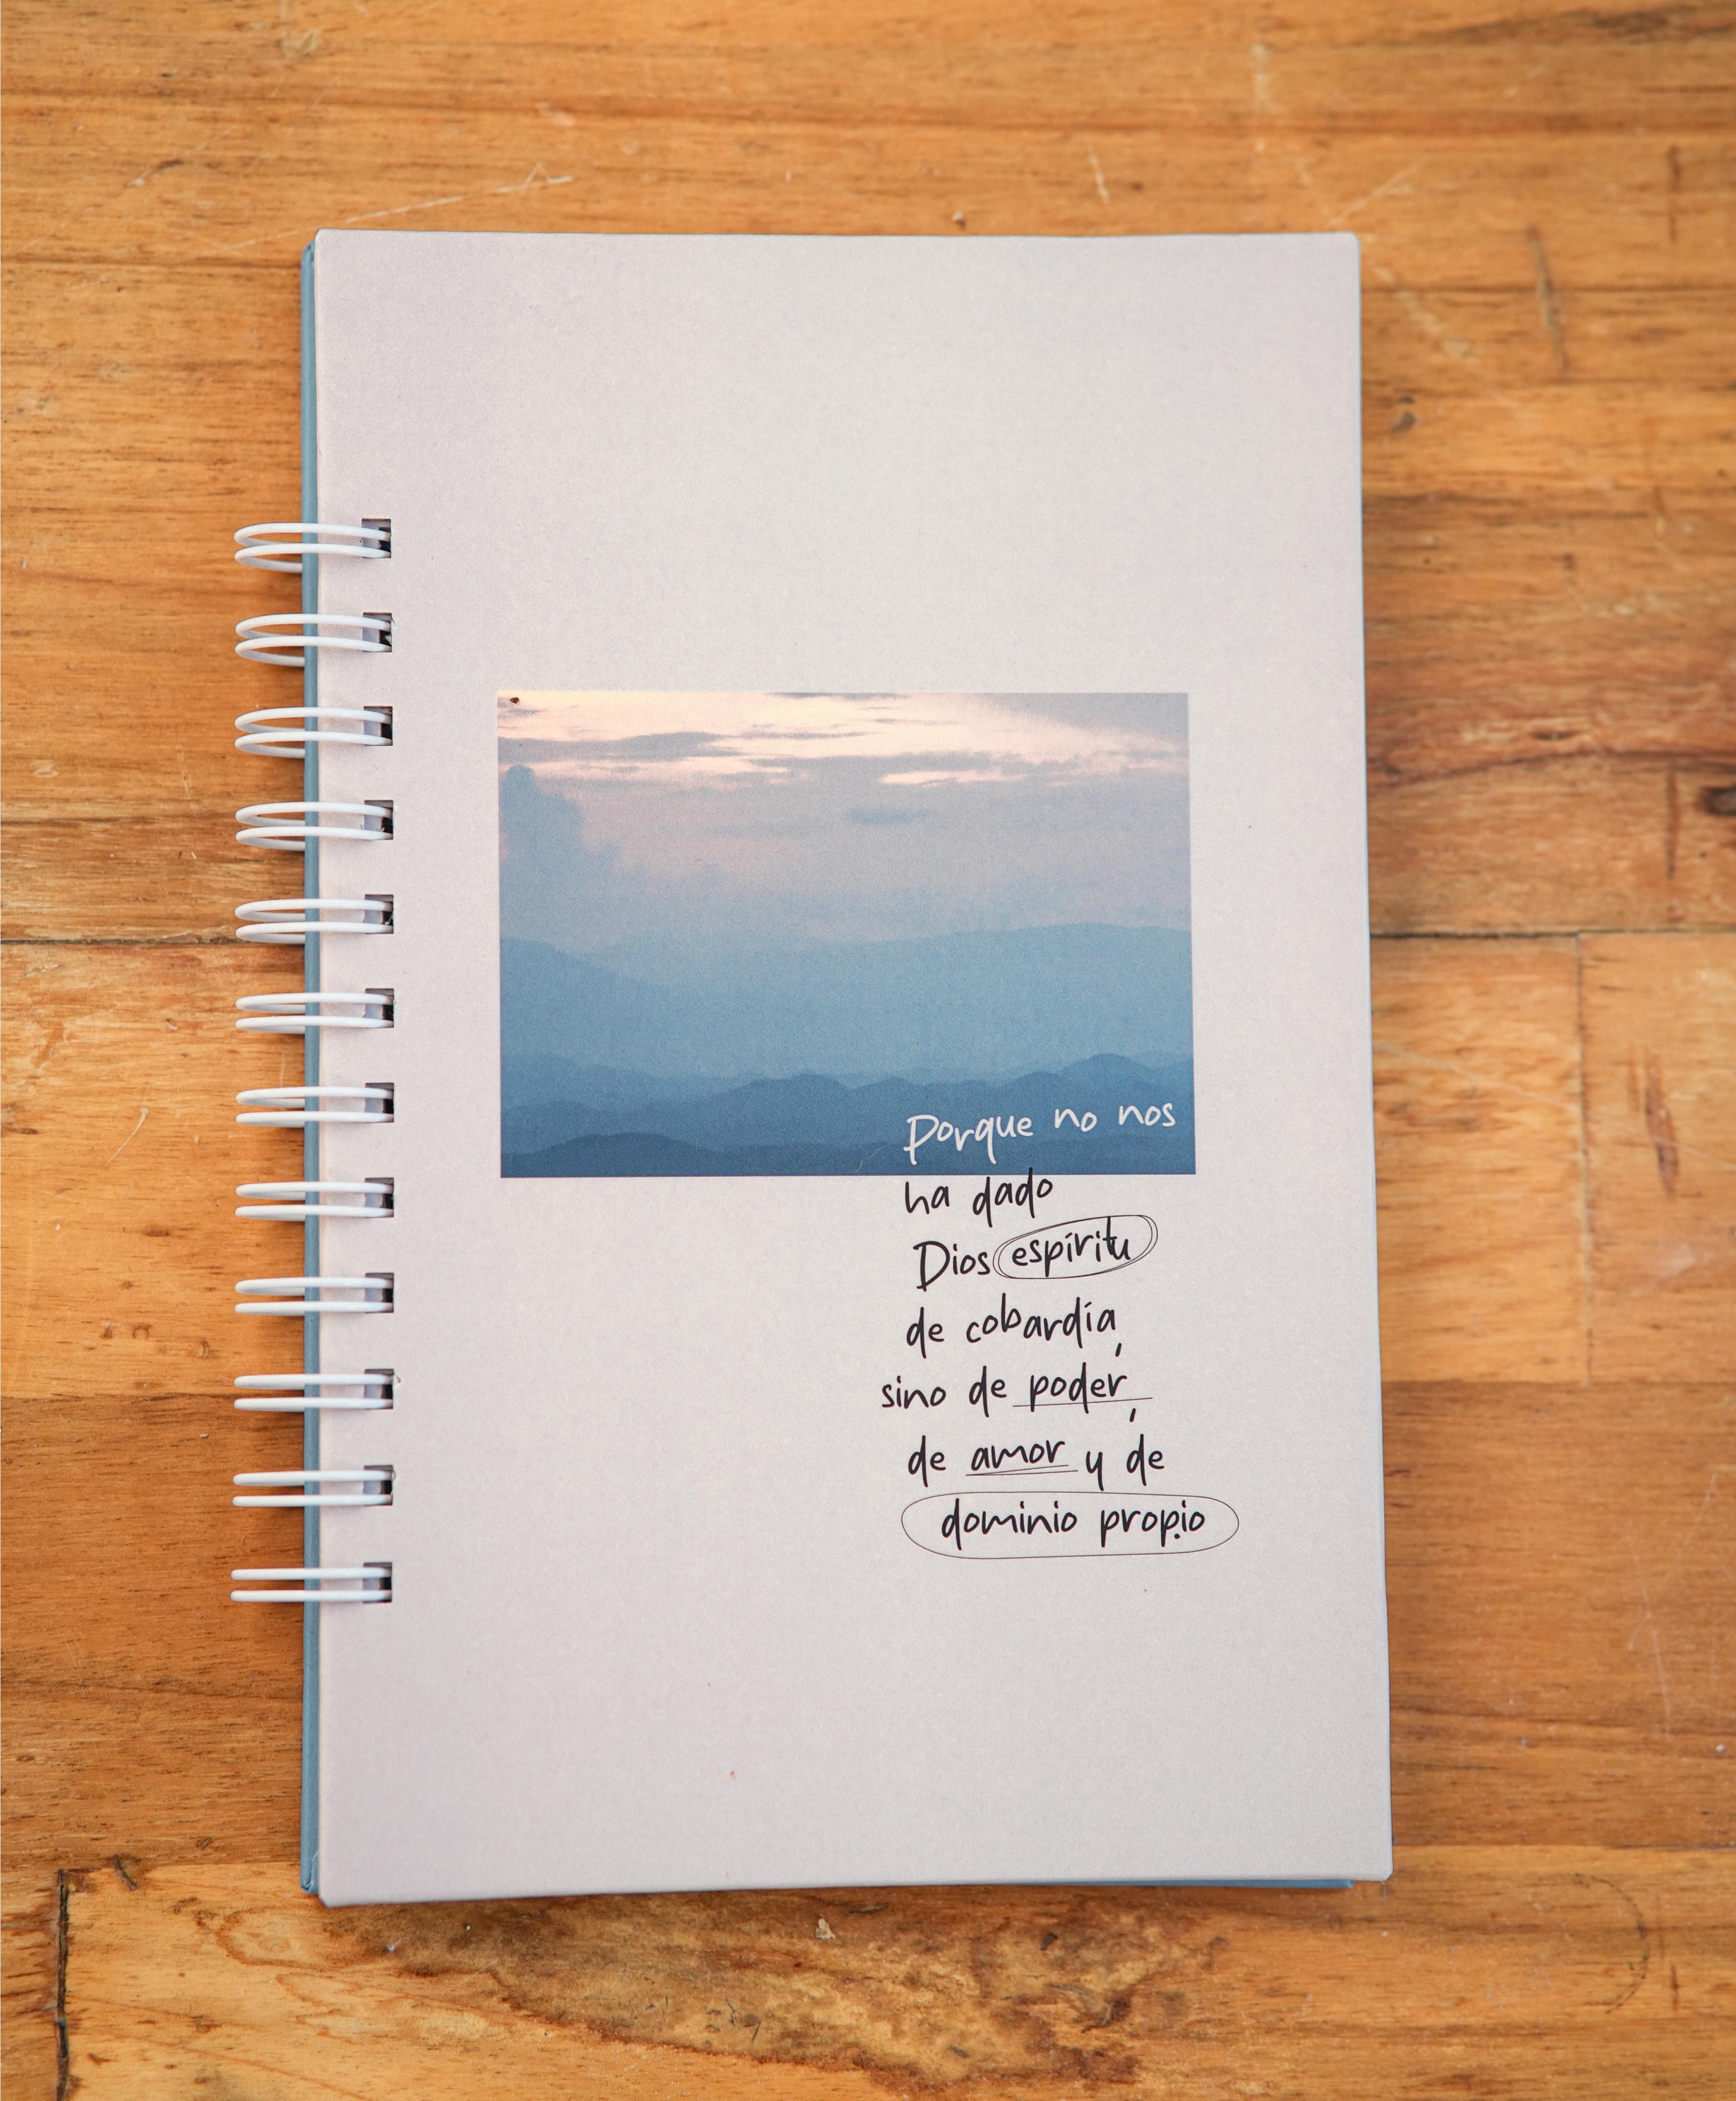 Porque no nos
ha dado
Dios espíritu
de cobardía,
sino de poder,
de amor y de
dominio propio.